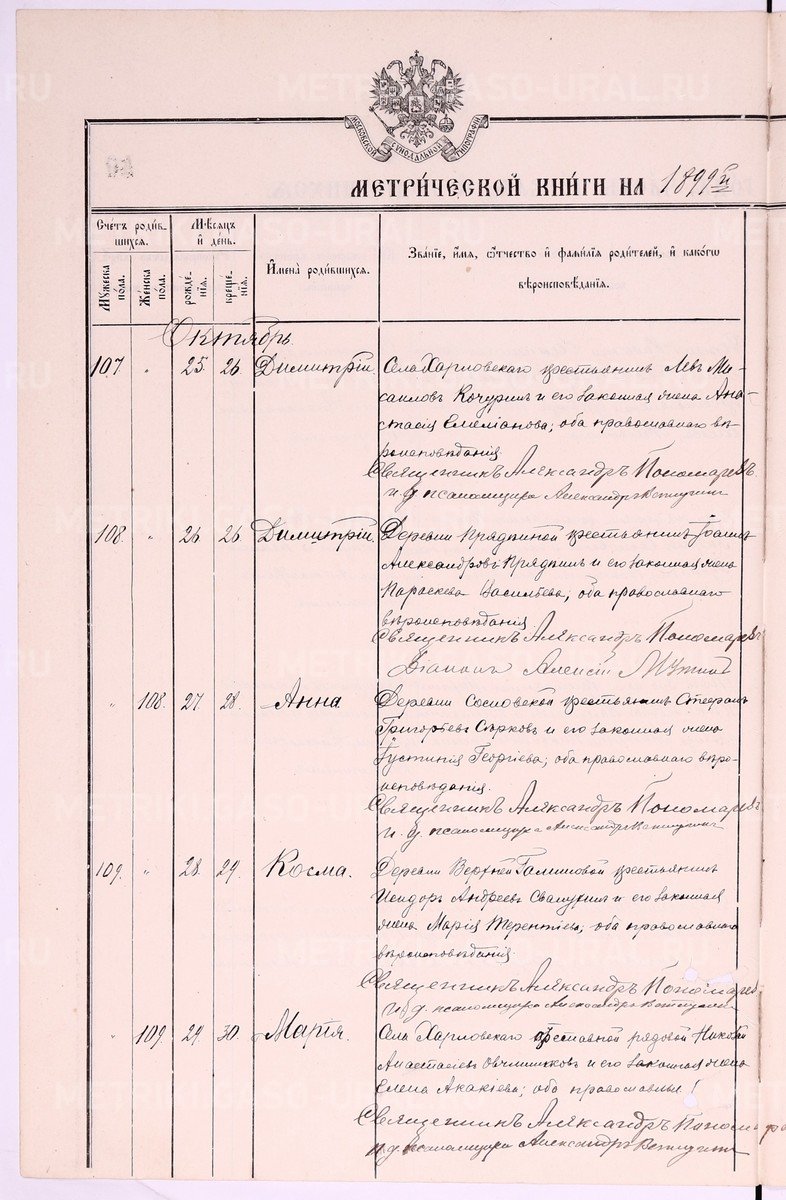 МОСКОВСКОЙ СѴНОДАЛЬНОЙ ТИПОГРАФІИ
МЕТРИ́ЧЕСКОЙ КНИ́ГИ НА 1899 й
Счетъ роди́вшихся.
Мѣсяцъ и день.
Имена̀ роди́вшихся.
Зва́ніе, и́мя, ѻ́тчество и фами́лія роди́телей, и како́гѡ
вѣроисповѣ́данія.
Му́жеска по́ла.
Же́нска по́ла.
рожде́нія.
креще́нія.
Октябрь
107 " 25 26 Димитрій. Села Харловскаго крестьянинъ Левъ Ми-
саиловъ Кочуринъ и его законная жена Ана-
стасія Емеліанова; оба православнаго вѣ-
роисповѣданія
Священникъ Александръ Пономаревъ
и. д. псаломщика Александръ
108. " 26 26 Димитрій. Деревни Прядкиной крестьянинъ Іоаннъ
Александровъ Прядкинъ и его законная жена
Параскева Васильева; оба православнаго
вѣроисповѣданія.
Священникъ Александръ Пономаревъ
Діаконъ Алексій
" 108. 27 28. Анна. Деревни Сосновской крестьянинъ Стефанъ
Григоріевъ Сѣрковъ и его законная жена
Іустинія Георгіева; оба православнаго вѣро-
исповѣданія.
Священникъ Александръ Пономаревъ
и. д. псаломщика Александръ
109. " 28. 29. Косма. Деревни Верхней крестьянинъ
Исидоръ Андреевъ и его законная
жена Марія Терентіева; оба православнаго
вѣроисповѣданія.
Священникъ Александръ Пономарев
и. д. псаломщика Александръ
" 109. 29. 30. Марія. Села Харловскаго рядовой Николай
Анастасіевъ Овчинниковъ и его законная жена
Елена Акакіева; оба православные
Священникъ Александръ Пономарев
и. д. псаломщика Александръ